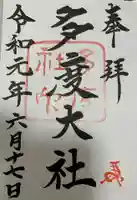 奉拝
多度大社
令和元年六月十七日